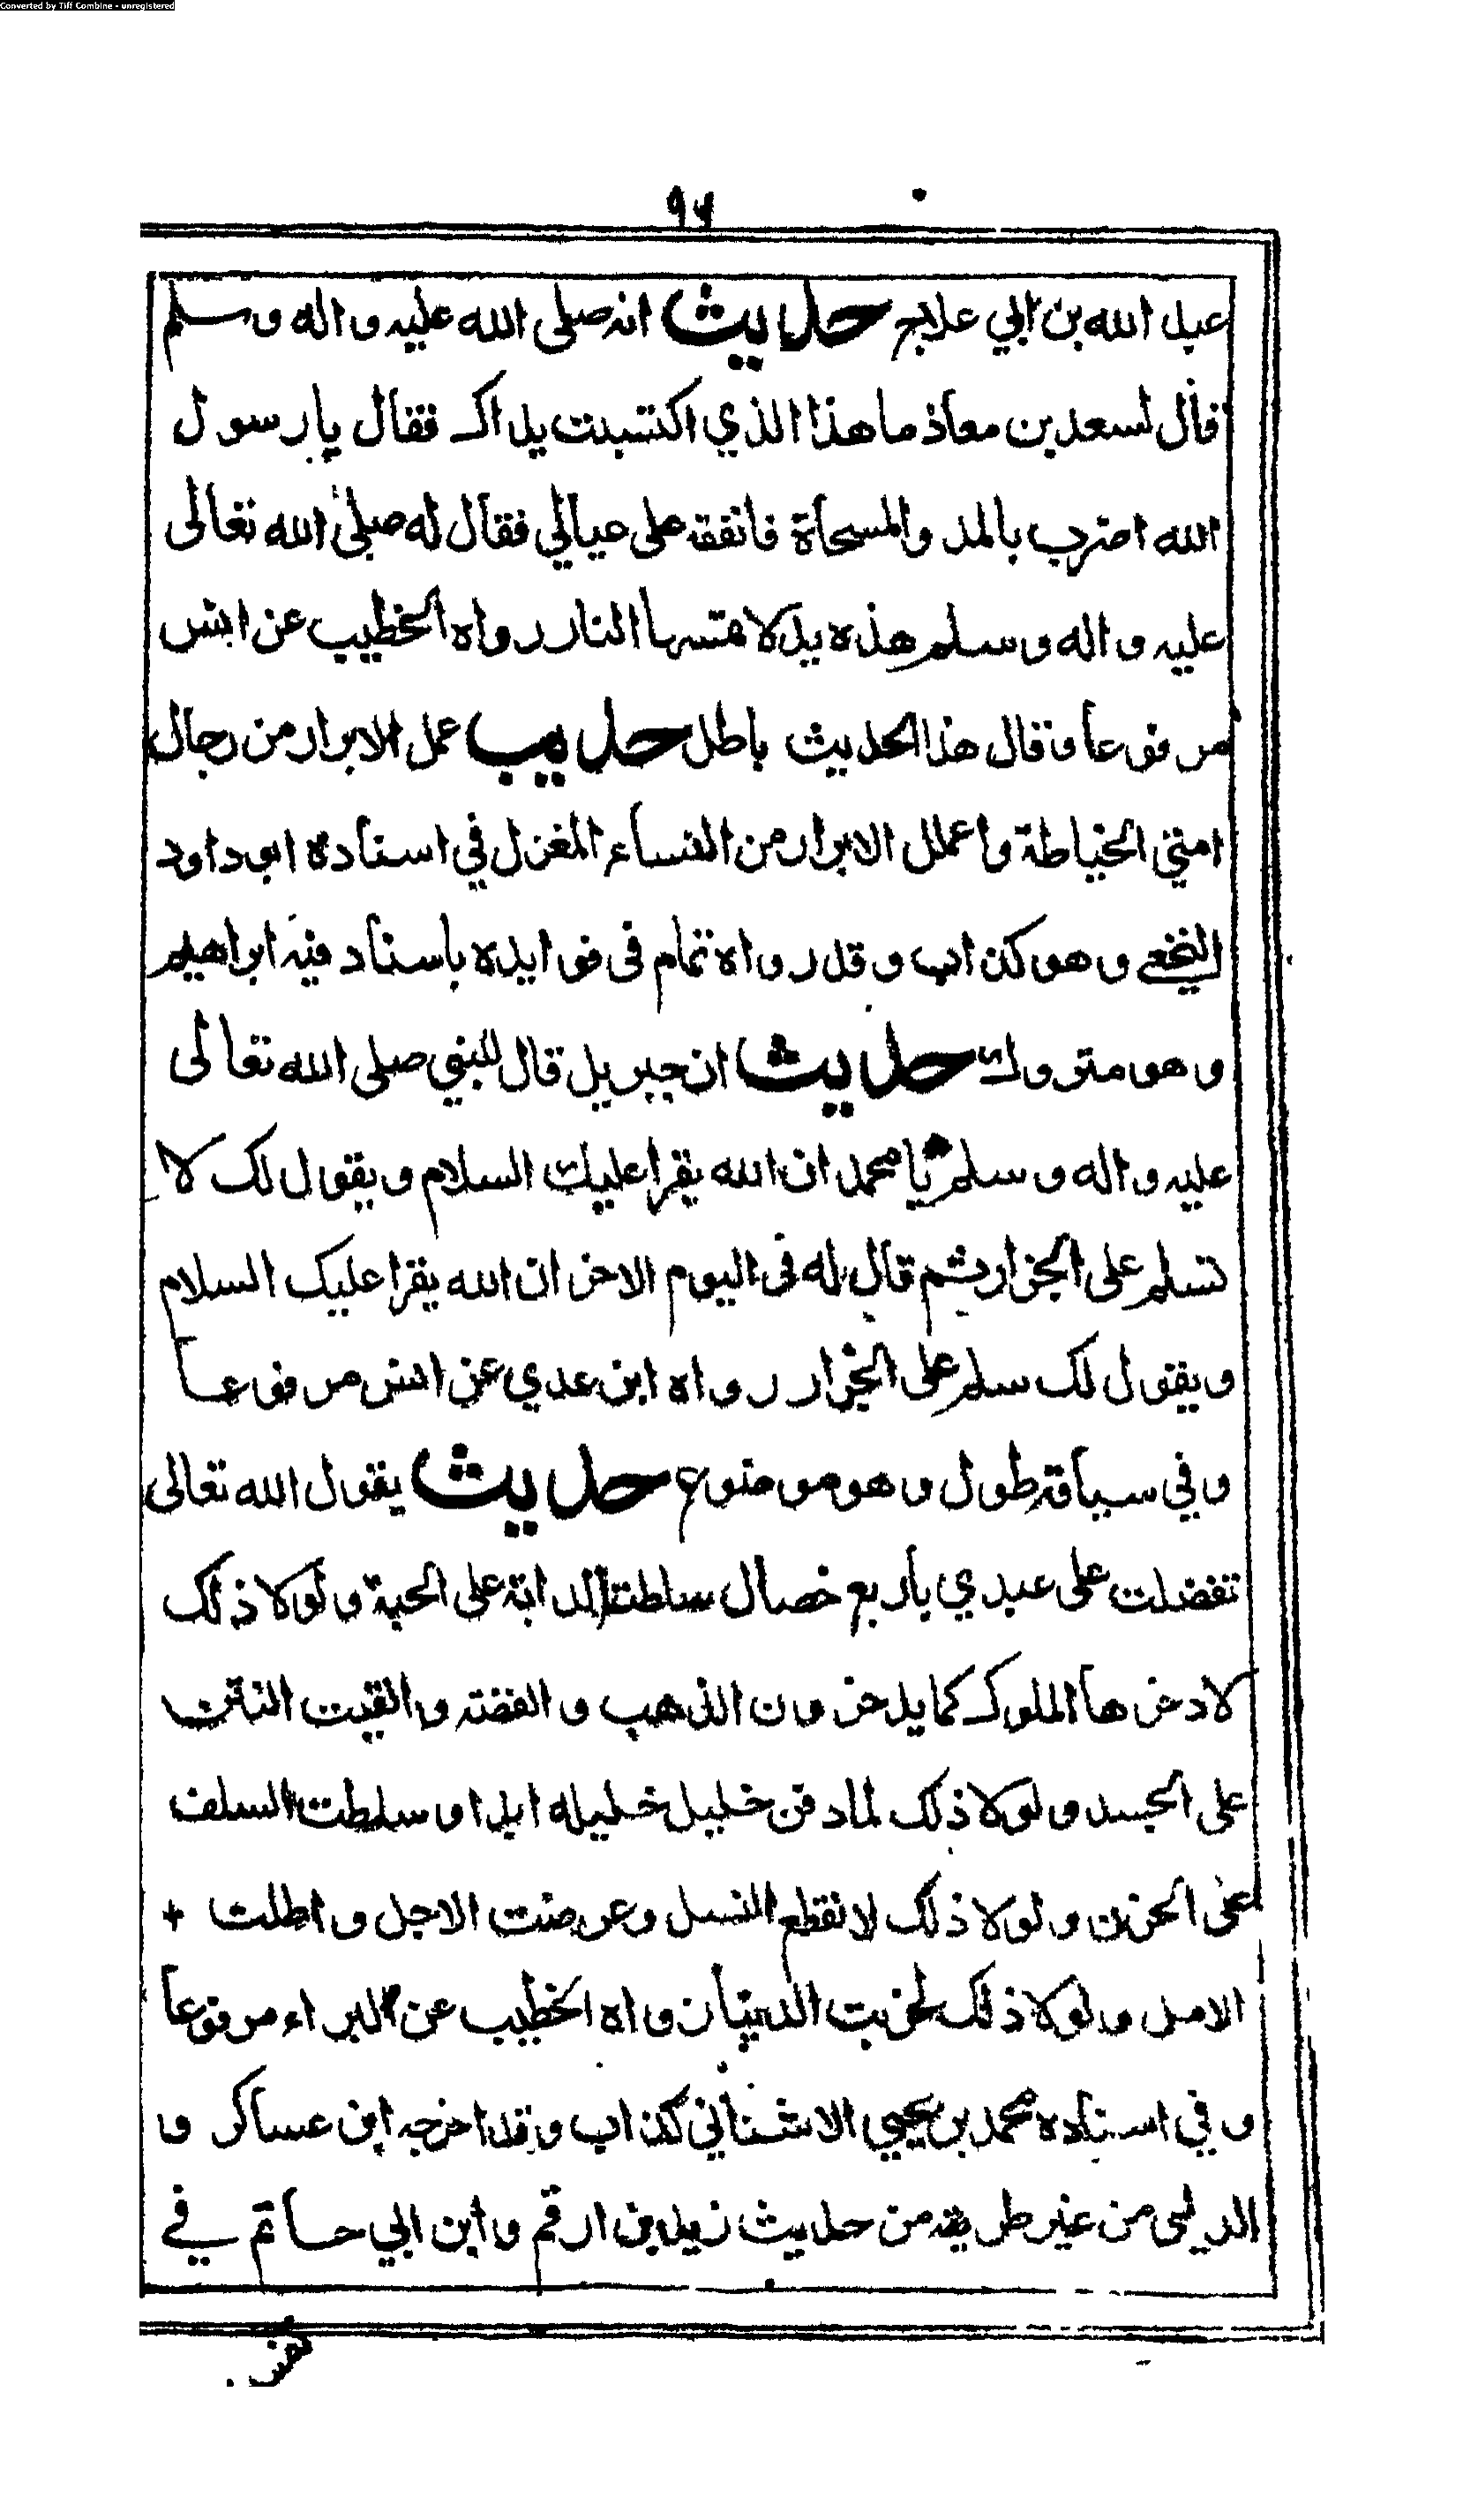 Converted by Tiff Combine - unregistered
٩٦
عبد الله بن ابي علاج حديث انه صلى الله عليه واله وسلم
قال لسعد بن معاذ ما هذا الذي اكتسبت يداك فقال يا رسول
الله اضرب بالمد والمسحاة فانفقه على عيالي فقال له صلى الله تعالى
عليه واله وسلم هذه يد لا تمسها النار رواه الخطيب عن انس
مرفوعا وقال هذا الحديث باطل حديث عمل الابرار من رجال
امتي الخياطة واعمال الابرار من النساء المغزل في اسناده ابو داود
النخعي وهو كذاب وقد رواه تمام في فوايده باسناد فيه ابراهيم
وهو متروك حديث ان جبريل قال للنبي صلى الله تعالى
عليه واله وسلم يا محمد ان الله يقرا عليك السلام ويقول لك لا
تسلم على الجزار ثم قال له في اليوم الاخر ان الله يقرا عليك السلام
ويقول لك سلم على الجزار رواه ابن عدي عن انس مرفوعا
وفي سياقه طول وهو موضوع حديث يقول الله تعالى
تفضلت على عبدي باربع خصال سلطت الدابة على الحبة ولولا ذلك
لادخرها الملوك كما يدخرون الذهب والفضة والقيت النتن
على الجسد ولولا ذلك لما دفن خليل خليله ابدا وسلطت السلف
على الحزن ولولا ذلك لانقطع النسل وعرضت الاجل واطلت +
الامل ولولا ذلك لخربت الدنيا رواه الخطيب عن البراء مرفوعا
وفي اسناده محمد بن يحيى الاشناني كذاب وقد اخرجه ابن عساكر و
الديلمي من غير طريقه من حديث زيد بن ارقم وابن ابي حاتم في